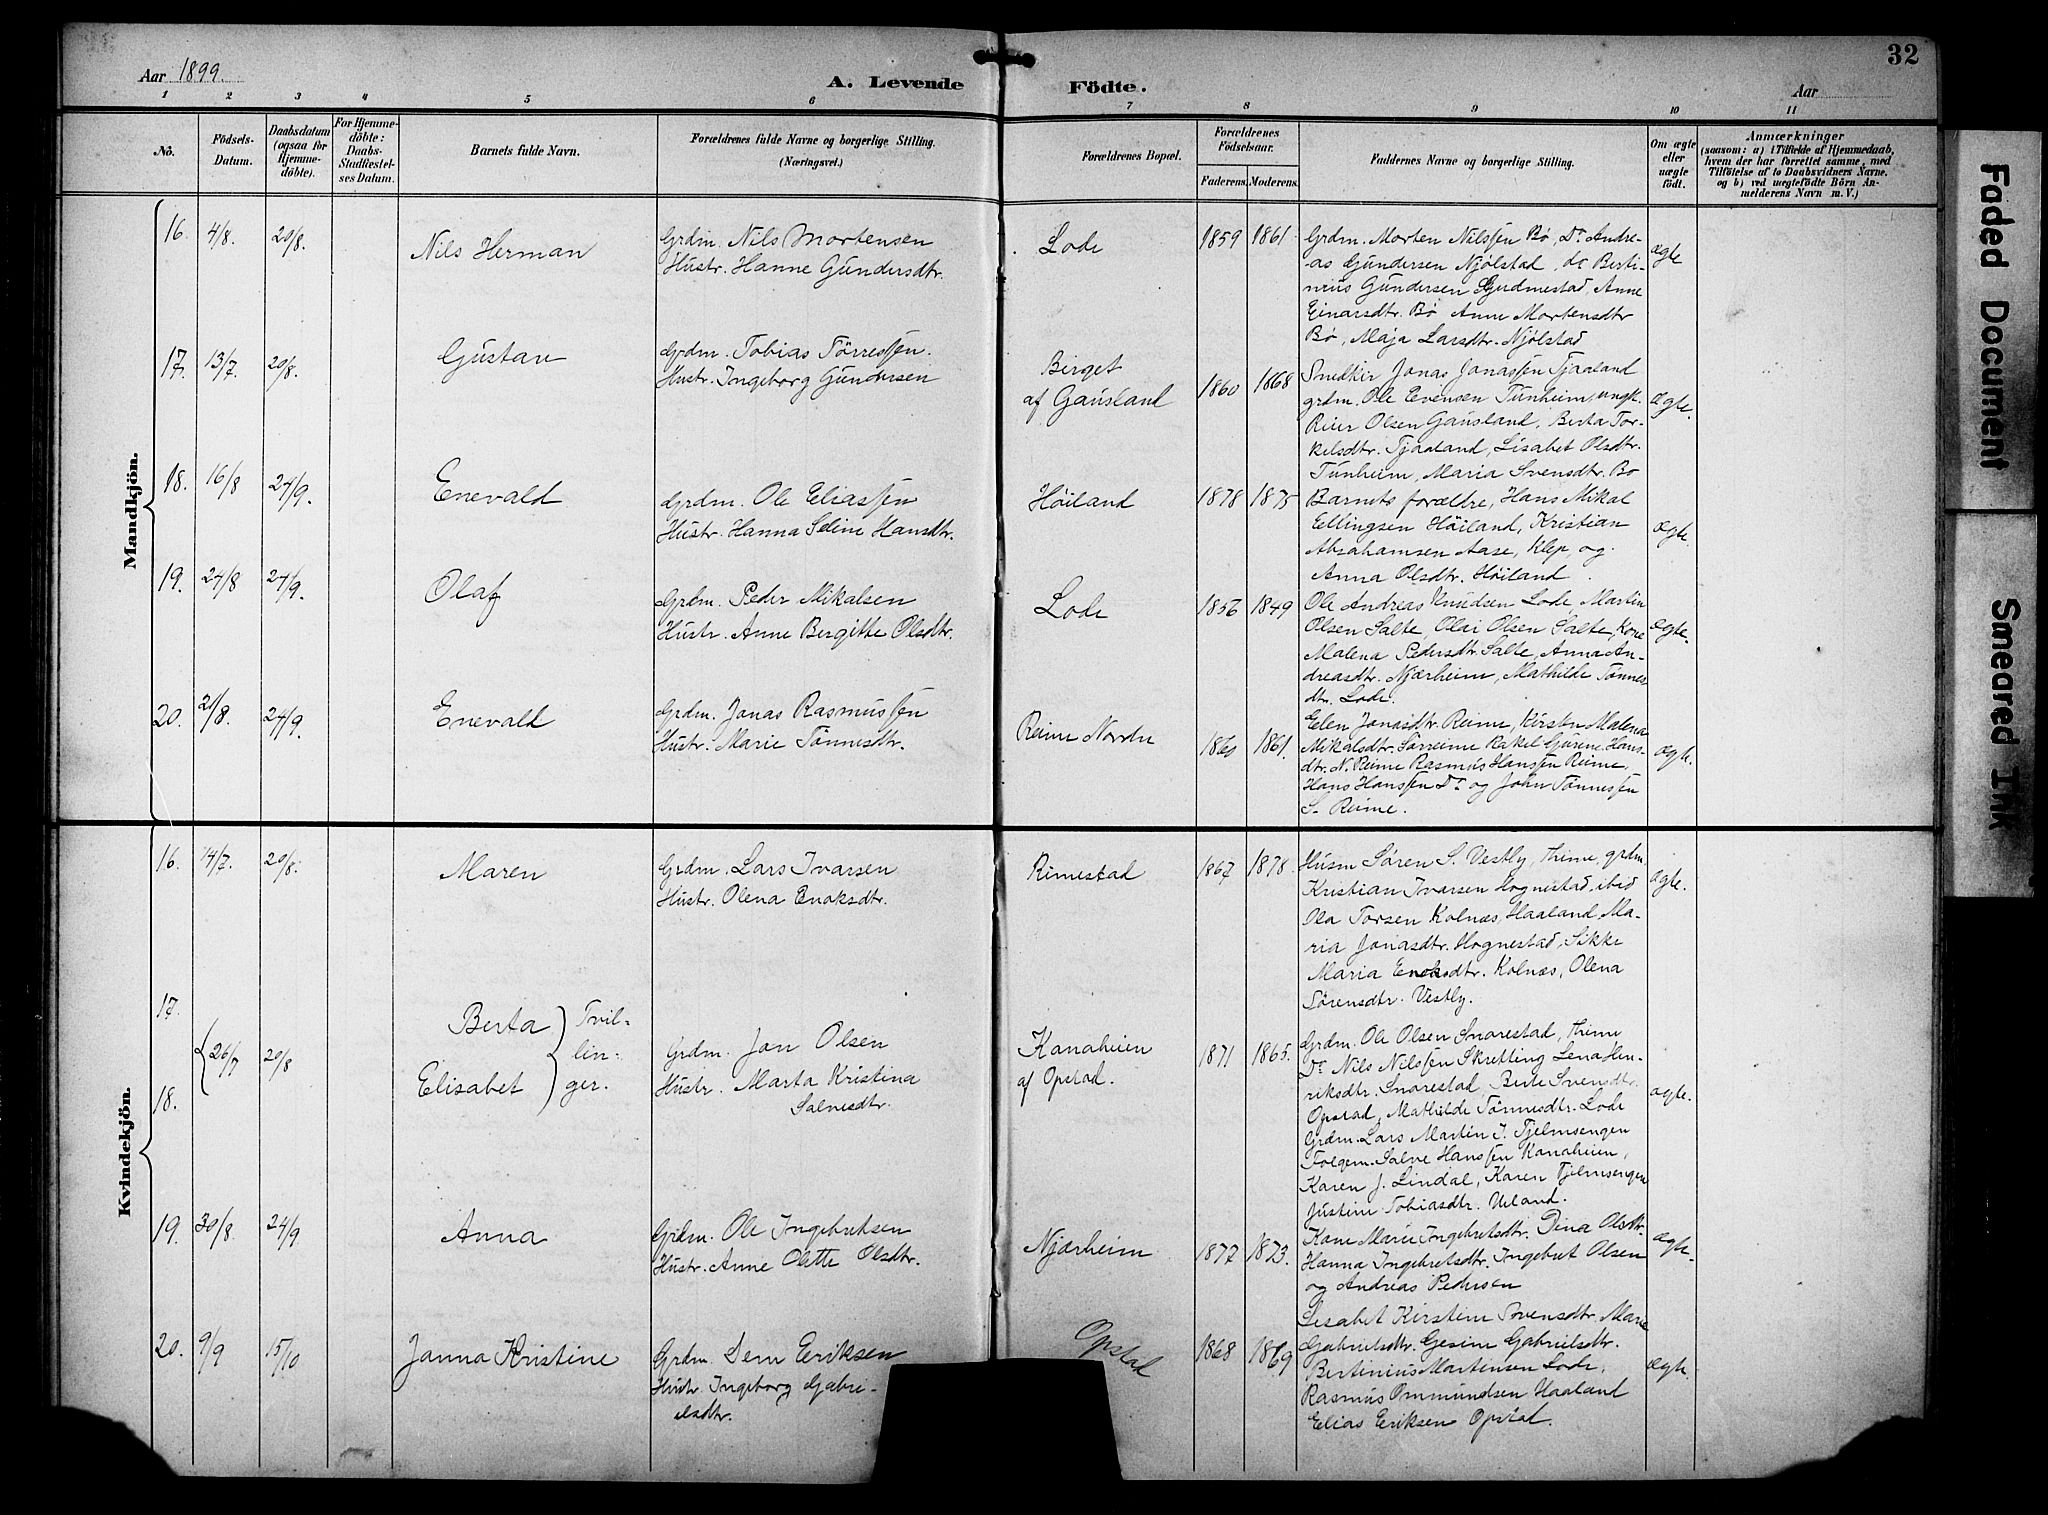 32
Aar 1899.
A. Levende Födte.
Aar
1 2 3 4 5 6 7 8 9 10 11
No.
Födsels-Datum.
Daabsdatum (ogsaa for Hjemmedöbte).
For Hjemmedöbte: Daabs-Stadfæstelses Datum.
Barnets fulde Navn.
Forældrenes fulde Navne og borgerlige Stilling. (Næringsvei.)
Forældrenes Bopæl.
Forældrenes Födselsaar.
Faderens. Moderens.
Faddernes Navne og borgerlig Stilling.
Om ægte eller uægte födt.
Anmærkninger
(saasom: a) i Tilfælde af Hjemmedaab, hvem der har forrettet samme, med Tilföielse af to Daabsvidners Navne, og b) ved uægtefödte Börn Anmelderens Navn m. V.)
Mandkjön.
16. 4/8. 20/8. Nils Herman
Grdm. Nils Mortensen
Hustr. Hanne Gundersdtr.
Lode 1859 1861.
Grdm. Morten Nilssen Bö, Do Andre-
as Gundersen Njølstad, do Berti-
nius Gundersen Gudmestad, Anne
Einarsdtr. Bø Anne Mortensdtr
Bø, Maja Larsdtr. Njølstad
ægte
17. 13/7. 20/8. Gustav
Grdm. Tobias Tørressen.
Hustr. Ingeborg Gundersen
Birget
af Gausland
1860 1868
Snedker Jonas Jonassen Tjaaland
grdm. Ole Evensen Tunheim, ungk.
Reier Olsen Gausland, Berta Tor-
kelsdtr. Tjaaland, Lisabet Olsdtr.
Tunheim, Maria Svensdtr. Bø
ægte.
18. 16/8 24/9. Enevald
Grdm. Ole Eliassen
Hustr. Hanna Seline Hansdtr.
Høiland 1878 1875
Barnets forældre, Hans Mikal
Ellingsen Høiland, Kristian
Abrahamsen Aase, Klep, og
Anna Olsdtr. Høiland.
ægte.
19. 24/8 24/9. Olaf
Grdm. Peder Mikalsen
Hustr. Anne Bergitte Olsdtr.
Lode 1856 1849
Ole Andreas Knudsen Lode, Martin
Olsen Salte, Olai Olsen Salte, Kone
Malena Pedersdtr. Salte, Anna An-
dreasdtr. Njærheim, Mathilde Tönnes
dtr. Lode.
ægte.
20. 21/8. 24/9. Enevald
Grdm. Jonas Rasmussen
Hustr. Marie Tønnesdtr.
Reime Nordre 1861.
Elen Jonasdtr. Reime, Kirsten Malena
Mikalsdtr. Sørreime Rakel Gurine Hans-
dtr. N. Reime Rasmus Hanssen Reime,
Hans Hanssen Do og John Tönnessen
S. Reime.
ægte.
Kvindekjön.
16. 14/7. 20/8. Maren
Grdm. Lars Ivarsen
Hustr. Olena Enoksdtr.
Rimestad 1867 1878.
Husm Søren S. Vestly, Thime, grdm.
Kristian Ivarsen Hognestad, ibid
Ola Torsen Kolnæs, Haaland, Ma-
ria Jonasdtr. Hognestad, Sikke
Maria Enoksdtr. Kolnæs, Olena
Sörensdtr. Vestly.
ægte.
17. Berta
18. Elisabet
Tvil-
lin-
ger.
26/7 20/8
Grdm. Jon Olsen
Hustr. Marta Kristina
Salvesdtr.
Kanaheien
af Opstad.
1871 1865.
Grdm. Ole Olsen Snarestad, Thime
Do Nils Nilssen Skretting Lena Hen-
riksdtr. Snarestad, Berte Svensdtr.
Opstad, Mathilde Tönnesdtr. Lode
Grdm. Lars Martin J. Tjelmsengen
Folgem. Salve Hanssen Kanaheien,
Karen J. Lindal, Karen Tjelmsengen
Justine Tobiasdtr. Ueland.
ægte.
19. 30/8. 24/9. Anna
Grdm. Ole Ingebretsen
Hustr. Anne Olette Olsdtr.
Njærheim 1877 1873.
Kone Marie Ingebretsdtr. Dina Olsdtr.
Hanna Ingebretsdtr. Ingebret Olsen
og Andreas Pedersen
ægte.
20. 9/9 15/10 Janna Kristine
Grdm. Dem Eriksen
Hustr. Ingeborg Gabri-
elsdtr.
Opstad 1868 1869
Lisabet Kirstine Svensdtr. Marie
Gabrielsdtr. Gesine Gabrielsdtr.
Bertinius Martensen Lode,
Rasmus Ommundsen Haaland
Elias Eriksen Opstad.
ægte.
Faded Document
Smeared Ink